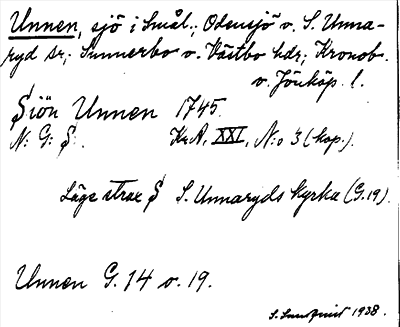 Unnen, sjö i Smål.; Odensjö o. S. Unna-
ryd sr; Sunnerbo o. Västbo hdr; Kronob.
o. Jönköp. l.
Siön Unnen 1745.
N: G: S:. KrA, XXI, N:o 3 (kop.).
Läge strax S S. Unnaryds kyrka (G.19).
Unnen G. 14 o. 19.
S. 1938.